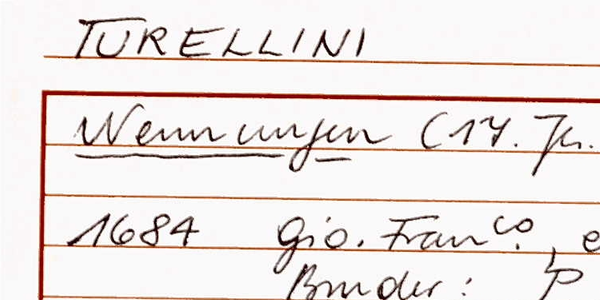 TURELLINI
Nennungen (17. Jh.
1684 Gio. Franco., e
Bruder: P